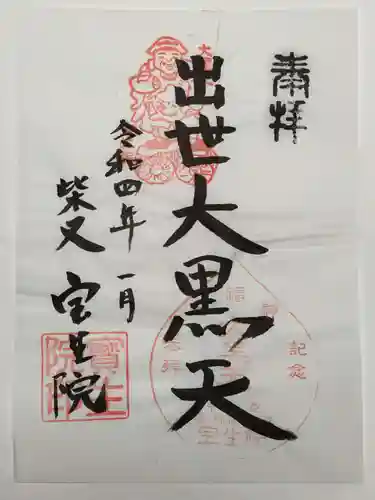 奉拝
出世大黒天
令和四年 一月
柴又 宝生院
寶生
院印
記念